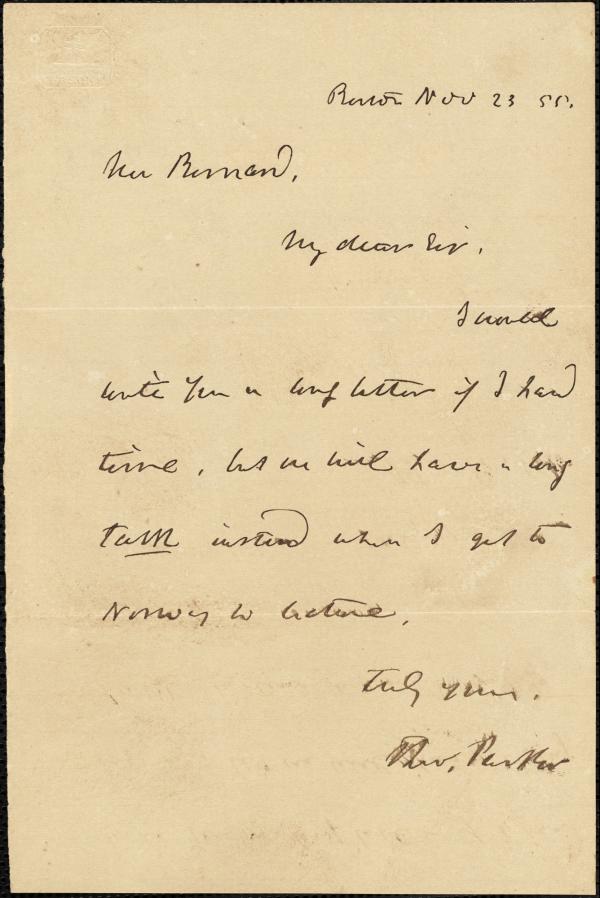 Boston Nov 23 55.
Mr Barnard,
My dear Sir,
I would
write you a long letter if I had
time, but we will have a long
talk instead when I get to
Norway to lecture.
truly yours.
Theo. Parker